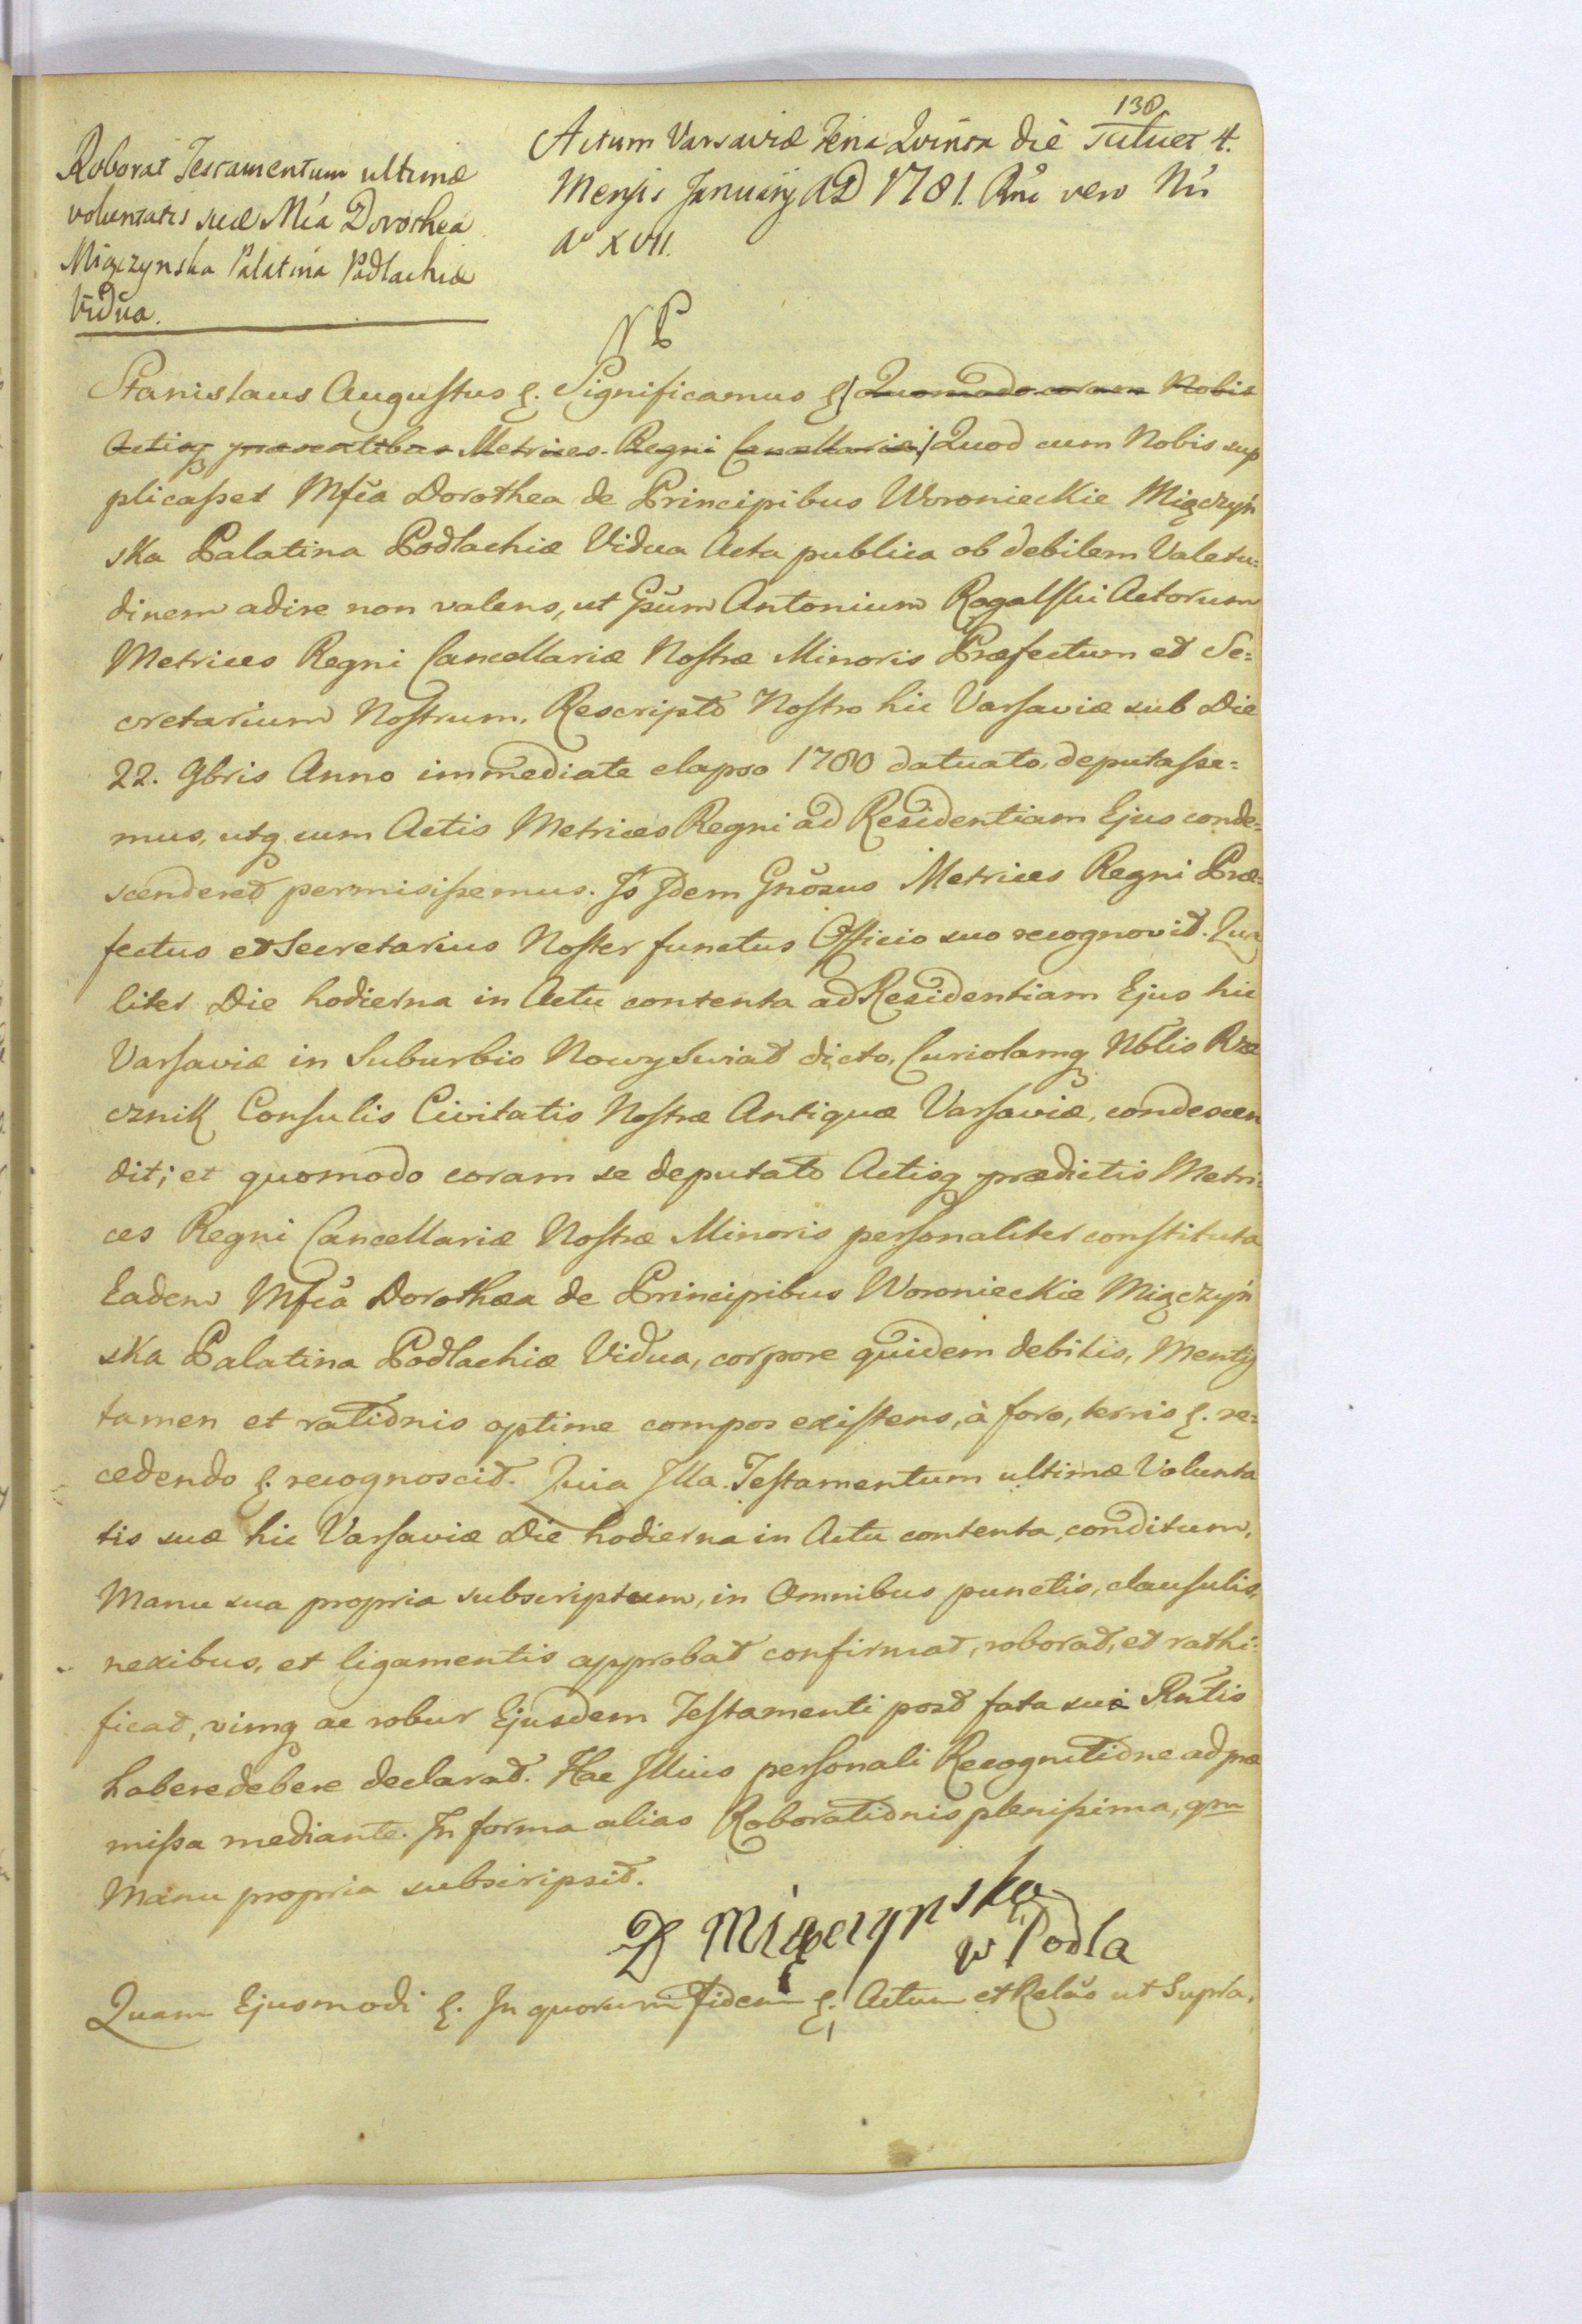 138
Roborat Testamentum ultimæ
voluntatis suæ Mía Dorothea
Miączynska Palatina Podlachiæ
Vidua.
Actum Varsaviæ Feria Quinta die 4.
Mensis Januarij AD 1781. Rni vero Nri
Ao XVII.
Stanislaus Augustus &. Significamus & Quomodo coram Nobis
Actisq præsentibus Metrices Regni Cancellariæ Quod cum Nobis sup
plicasset Mfca Dorothea de Principibus Woronieckie Miączyń
ska Palatina Podlachiæ Vidua Acta publica ob debilem Valetu=
dinem adire non valens, ut Gsum Antonium Rogalski Actorum
Metrices Regni Cancellariæ Nostræ Minoris Præfectum et Se=
cretarium Nostrum, Rescripto Nostro hic Varsaviæ sub Die
22. 9bris Anno immediate elapso 1780 datuato, deputasse=
mus, utq cum Actis Metrices Regni ad Residentiam Ejus conde=
scenderet permisissemus. Is Idem Gnosus Metrices Regni Præ=
fectus et Secretarius Noster functus Officio suo recognovit. Qua
liter Die hodierna in Actu contenta ad Residentiam Ejus hic
Varsaviæ in Suburbio Nowy Swiat dicto, Curiolamq Nblis Rze
cznik Consulis Civitatis Nostræ Antiquæ Varsaviæ, condescen
dit; et quomodo coram se deputato Actisq prædictis Metri=
ces Regni Cancellariæ Nostræ Minoris personaliter constituta
Eadem Mfca Dorothea de Principibus Woronieckie Miączyń
ska Palatina Podlachiæ Vidua, corpore quidem debilis, Mentis
tamen et rationis optime compos existens, à foro, terris &. re=
cedendo &. recognoscit. Quia Illa Testamentum ultimæ Volunta
tis suæ hic Varsaviæ Die hodierna in Actu contenta, conditum,
Manu sua propria subscriptum, in Omnibus punctis, clausulis,
nexibus, et ligamentis approbat confirmat, roborat, et rathi=
ficat, vimq ac robur Ejusdem Testamenti post fata sui Rntis
habere debere declarat. Hac Illius personali Recognitione ad præ
missa mediante. In forma alias Roborationis plenissima, qm
Manu propria subscripsit.
D Miączynska
w Podla
Quam Ejusmodi &. In quorum Fidem &. Actum et Relăs ut Supra.